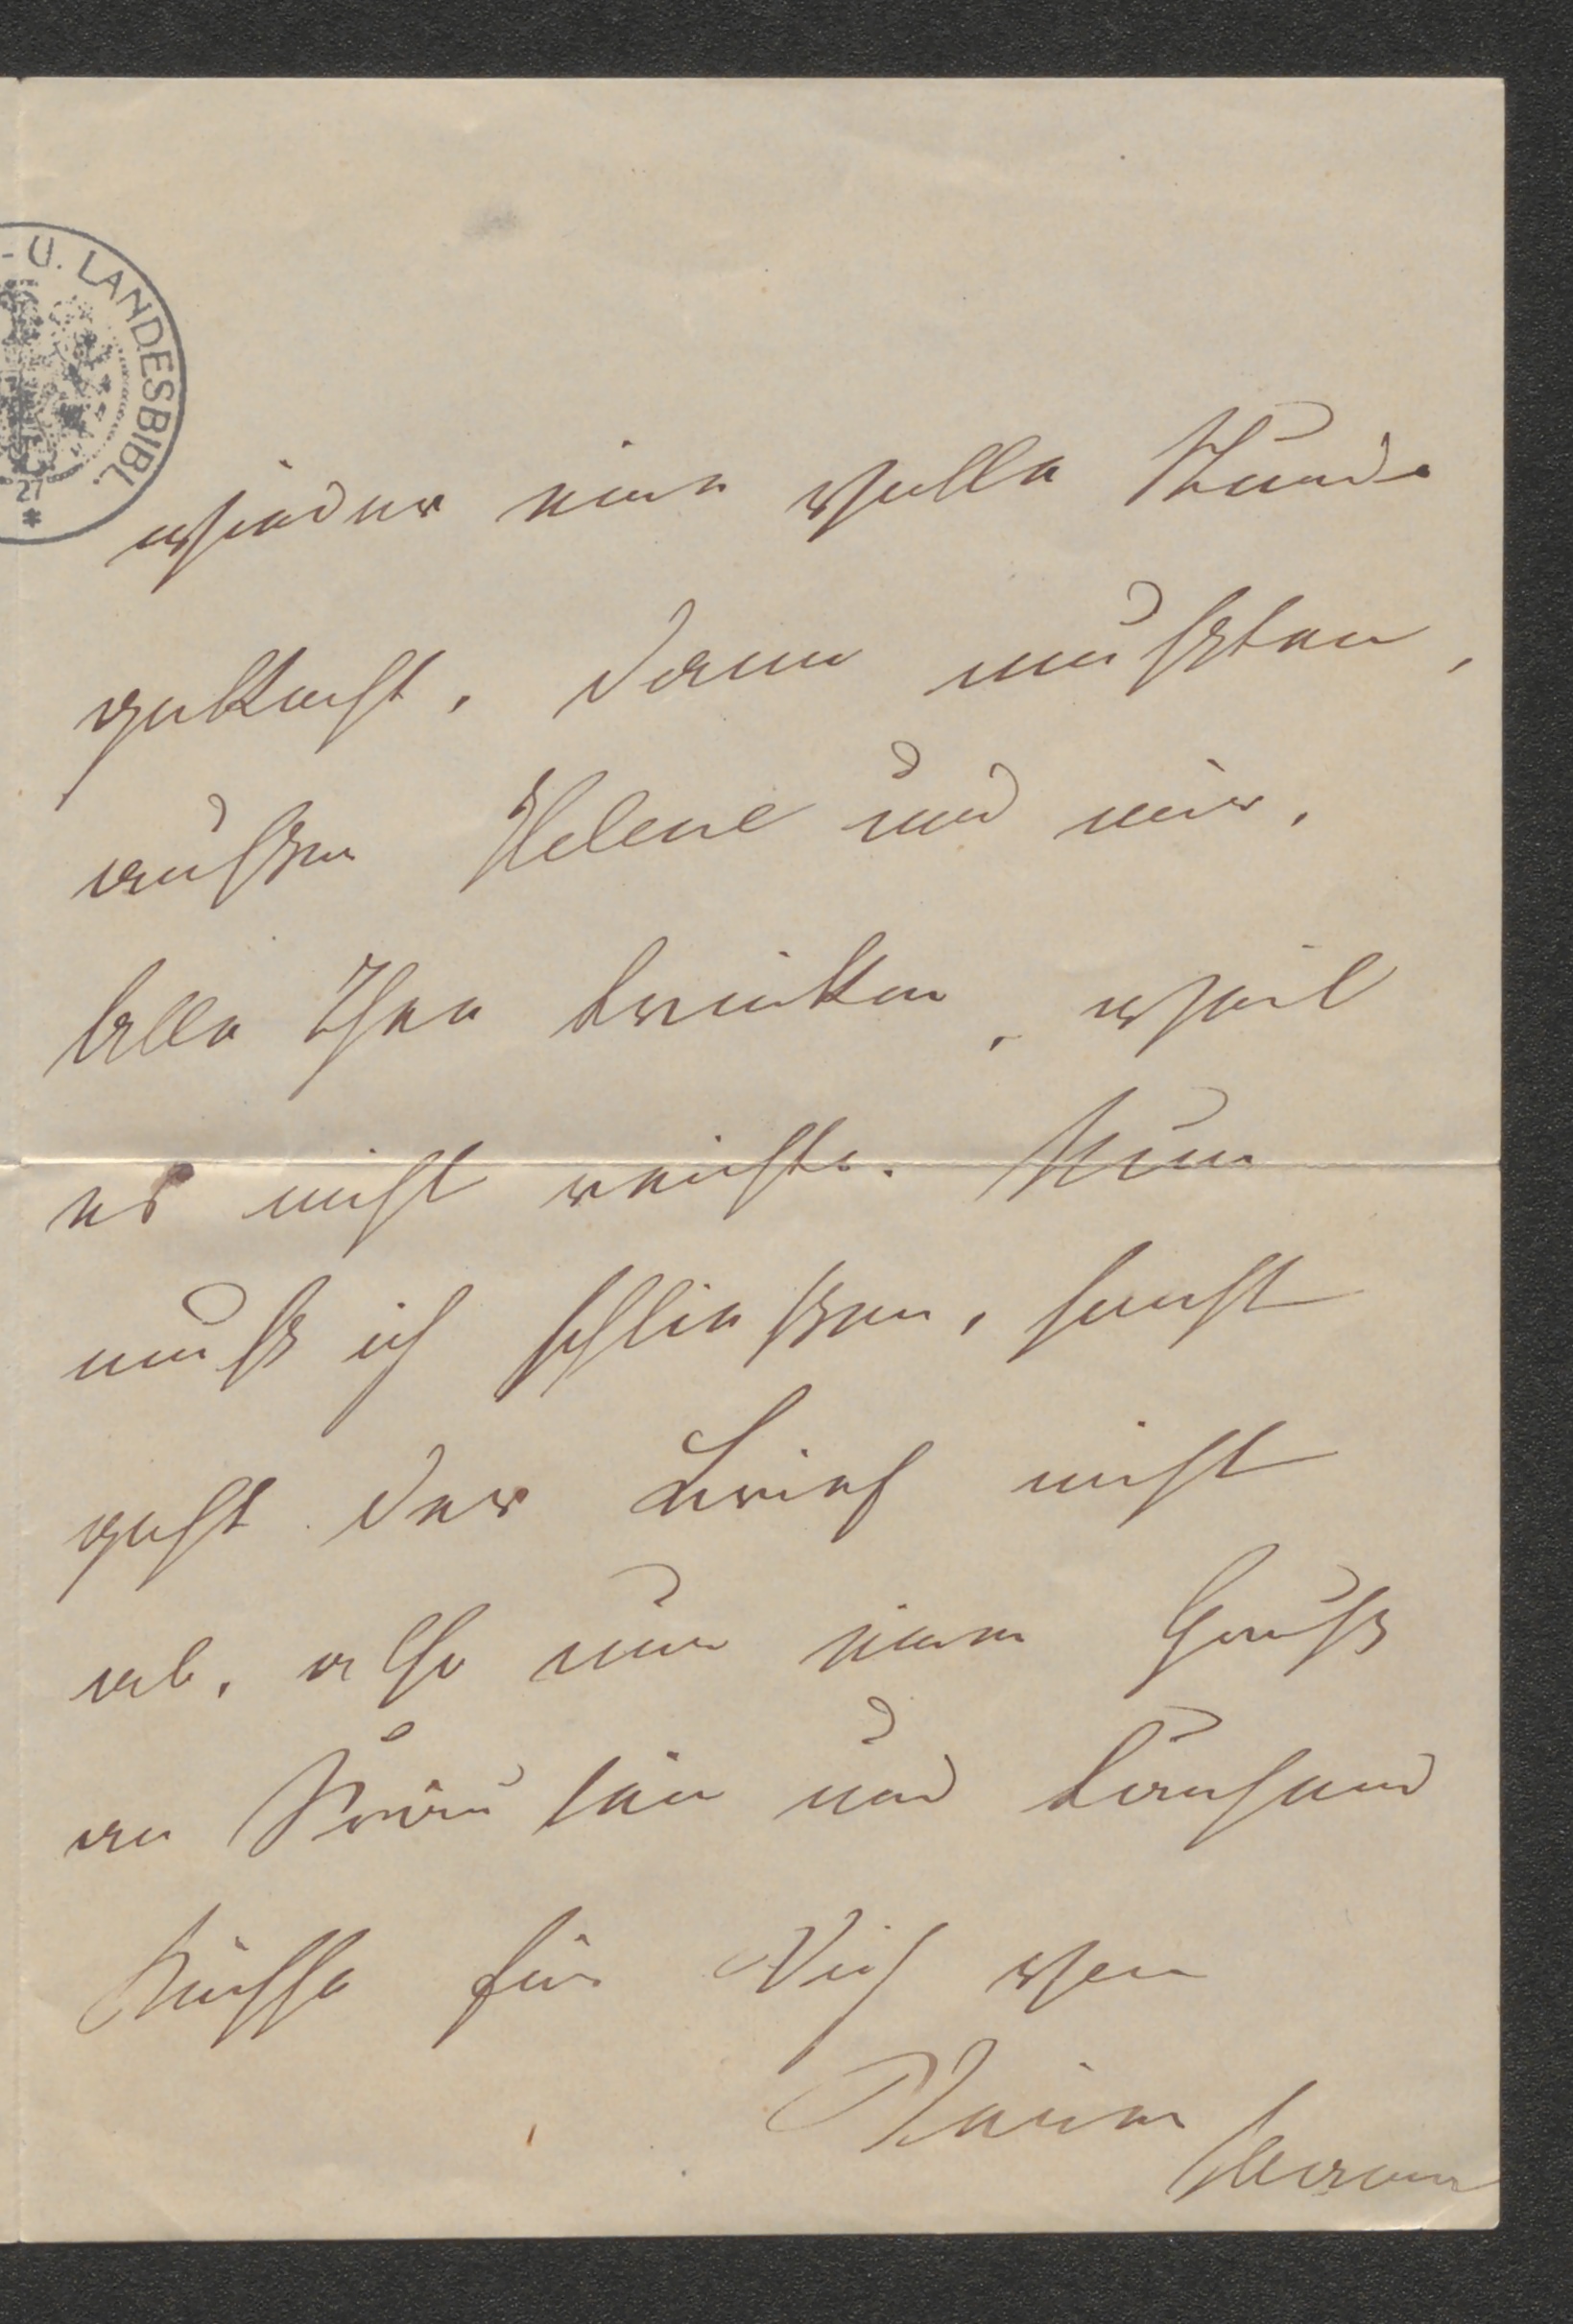 - U. LANDESBIBL.
27
*
wieder eine volle Stunde
gekocht, dann mußten,
außer Helene und mir,
Alle Thee trinken, weil
es nicht reichte. Nun
muß ich schließen, sonst
geht der Brief nicht
ab, also nur einen Gruß
an Fräulein und tausend
Küsse für Dich von
Deiner
Mama